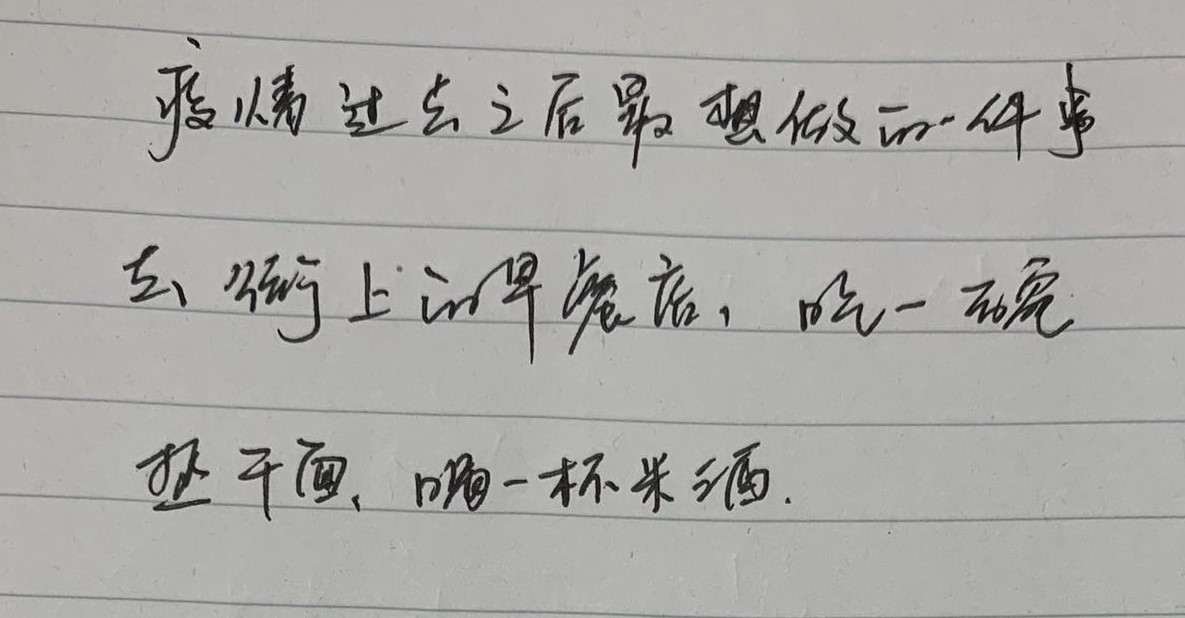 疫情过去之后最想做的一件事
去街上的早餐店，吃一碗
热干面、喝一杯米酒.